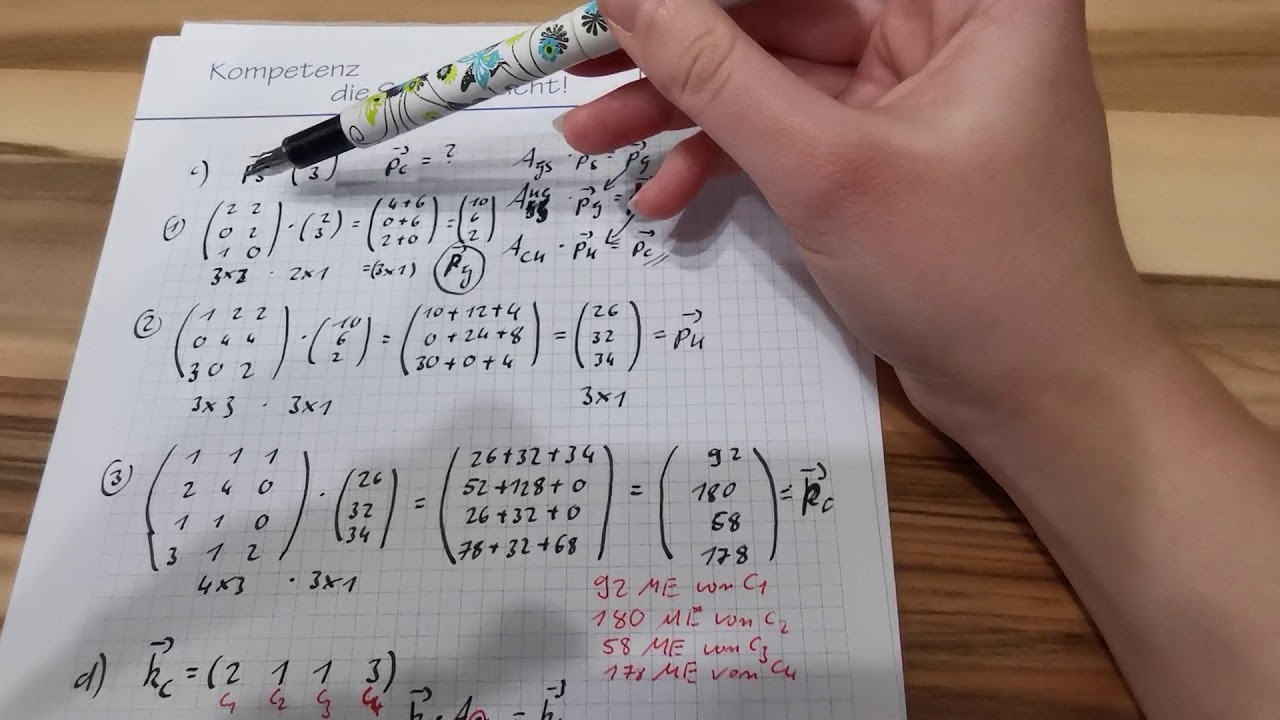 Kompetenz
die
c) ps ( 3 ) pc = ? Ags · ps = pg
· pg =
ACH · pH = pc
① (2 2 / 0 2 / 1 0) · (2 / 3) = (4+6 / 0+6 / 2+0) = (10 / 6 / 2)
2x1 =(3x1) pg
② (1 2 2 / 0 4 4 / 3 0 2) · (10 / 6 / 2) = (10+12+4 / 0+24+8 / 30+0+4) = (26 / 32 / 34) = pH
3x3 · 3x1 3x1
③ (1 1 1 / 2 4 0 / 1 1 0 / 3 1 2) · (26 / 32 / 34) = (26+32+34 / 52+128+0 / 26+32+0 / 78+32+68) = (92 / 180 / 58 / 178) = pc
4x3 · 3x1
92 ME von C1
180 ME von C2
58 ME von C3
178 ME von C4
d) kc = (2 1 1 3)
C1 C2 C3 C4